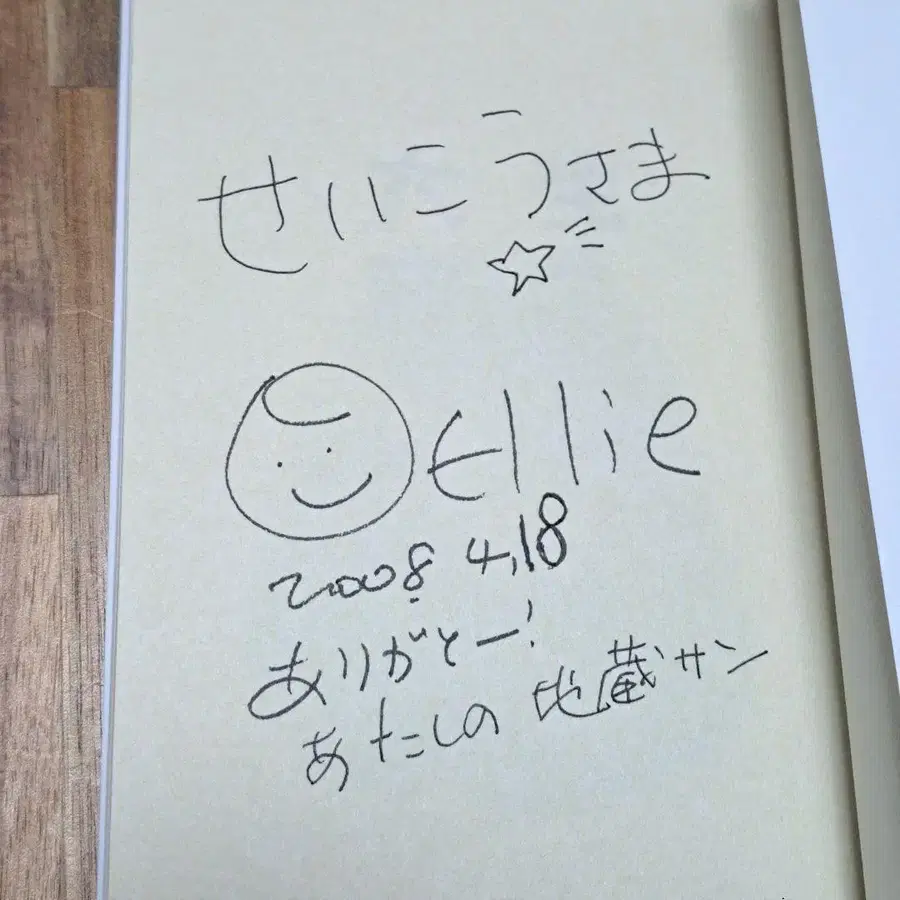 せいこうさま
Ellie
2008. 4.18
ありがとー!
あたしの 地蔵サン